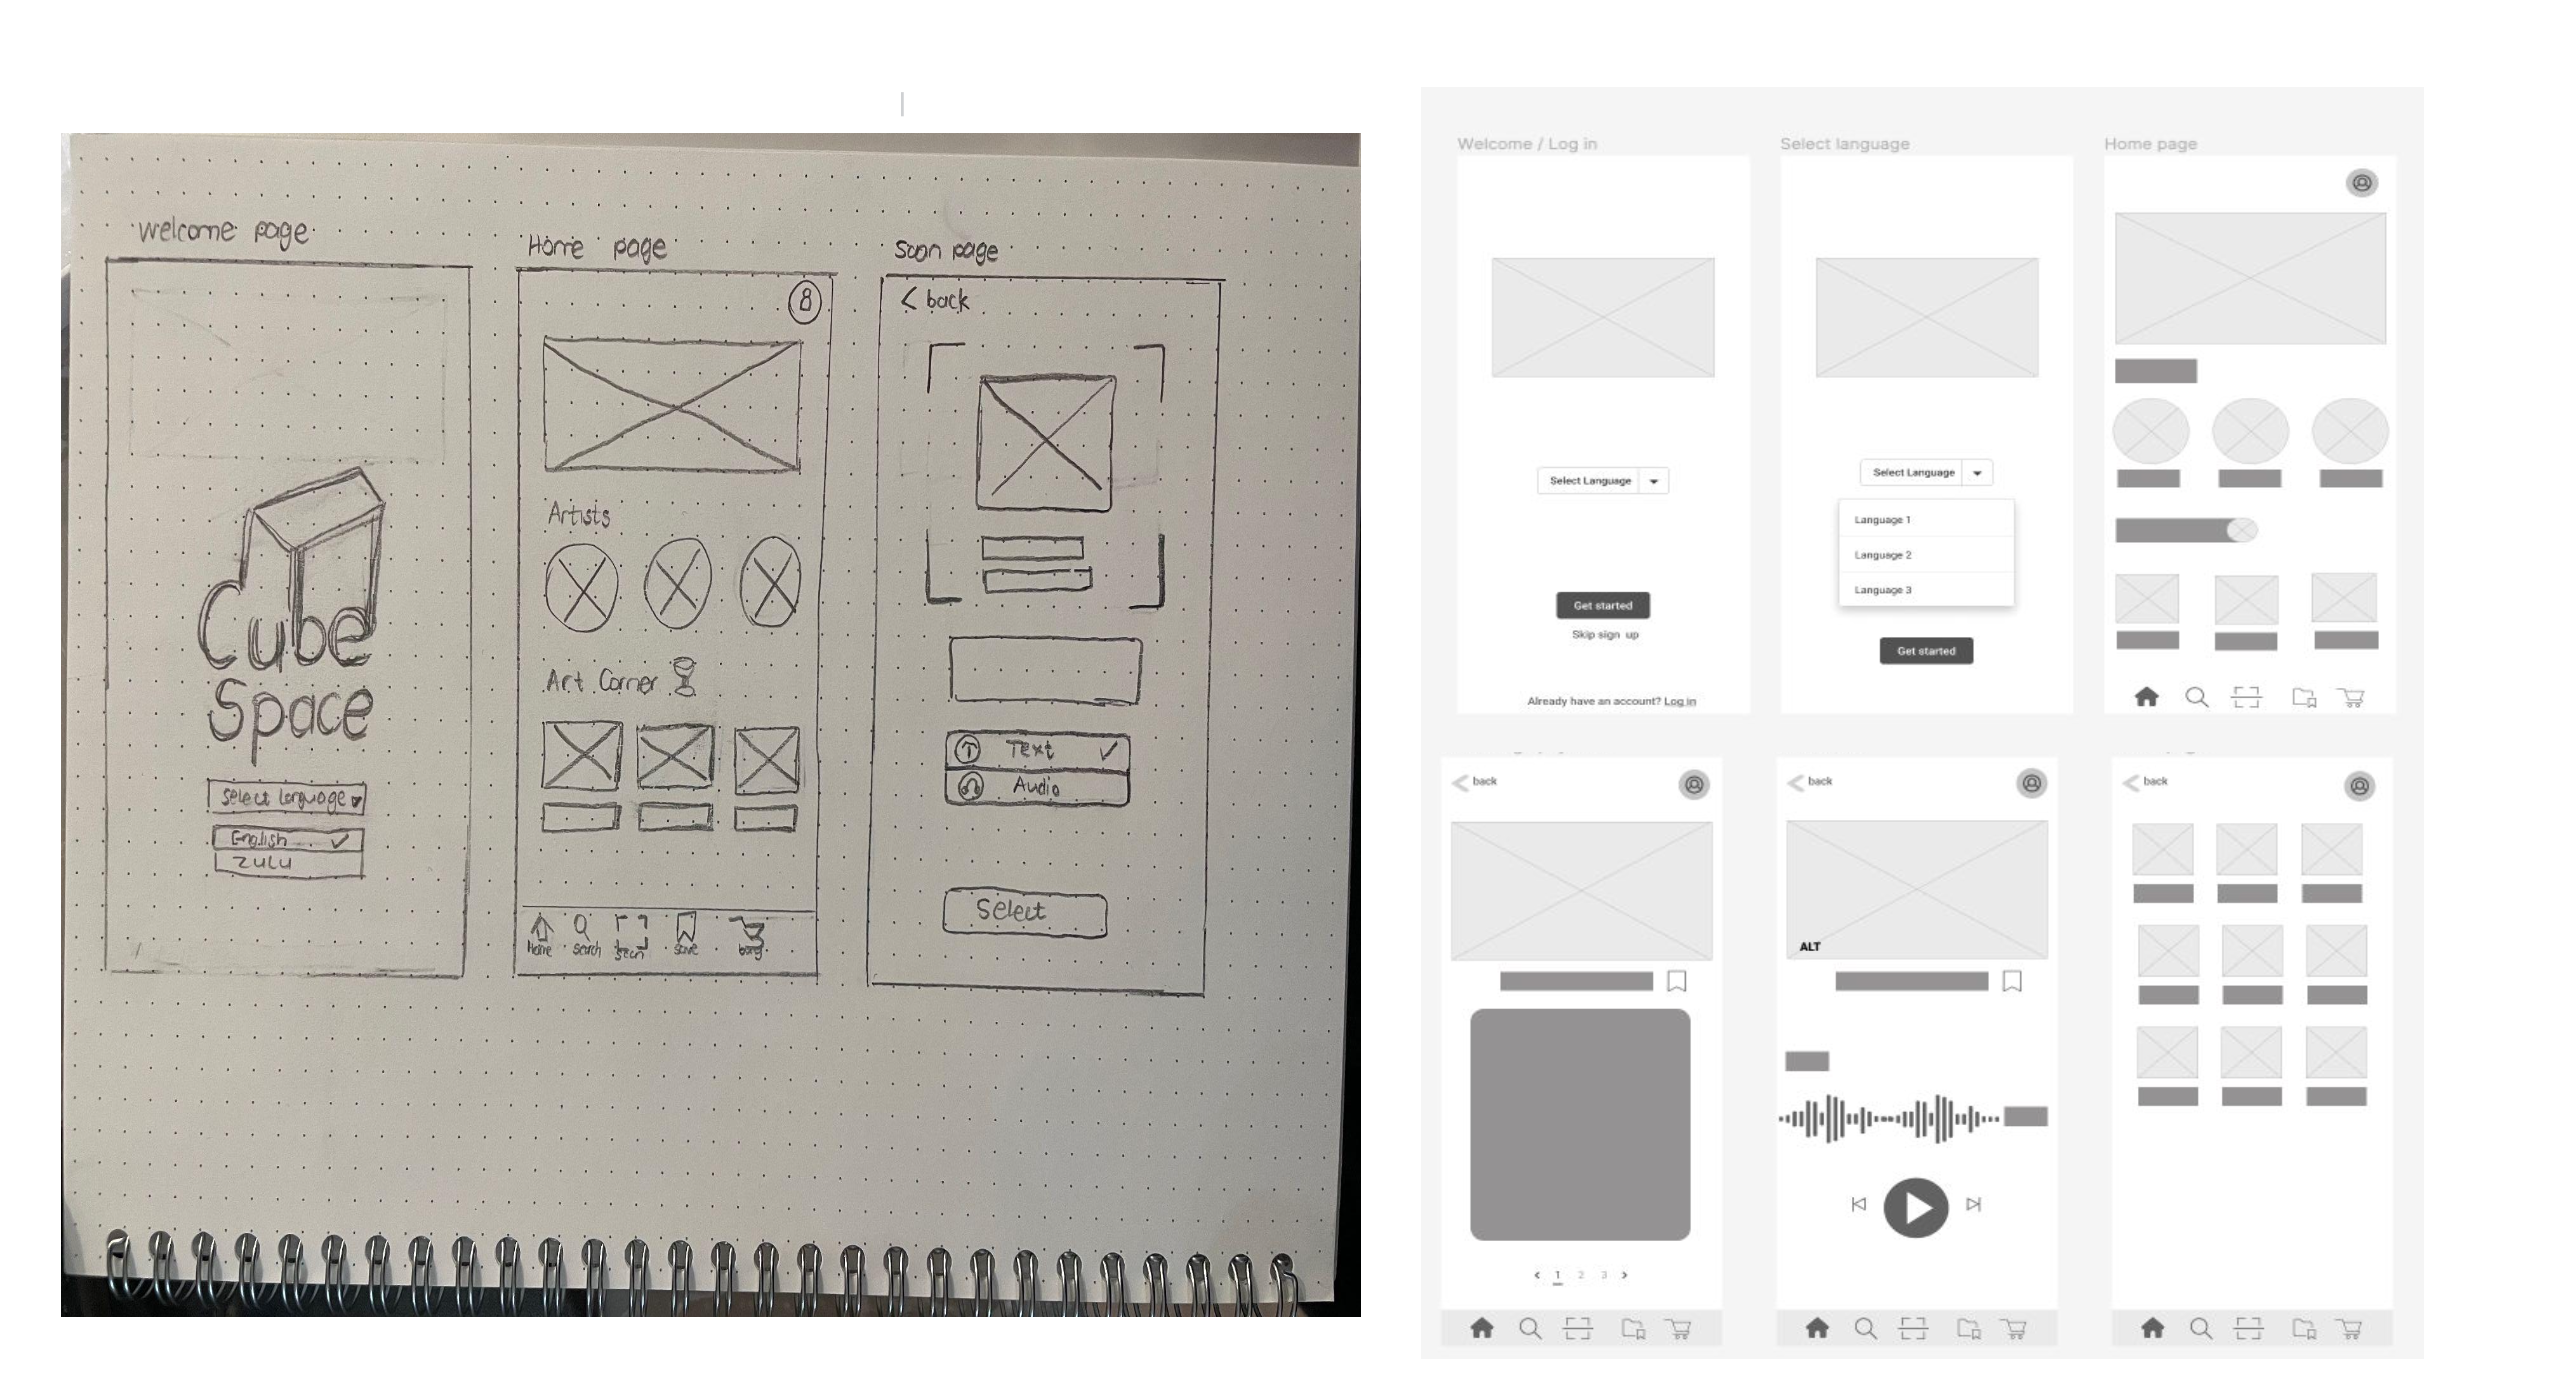 welcome page
Cube
Space
Select language
English
ZULU
Home page
Artists
Art Corner
Home
search
scan
save
Scan page
< back
Text
Audio
Select
Welcome / Log in
Select Language
Get started
Skip sign up
Already have an account? Log in
Select language
Select Language
Language 1
Language 2
Language 3
Get started
Home page
back
< 1 2 3 >
back
ALT
back